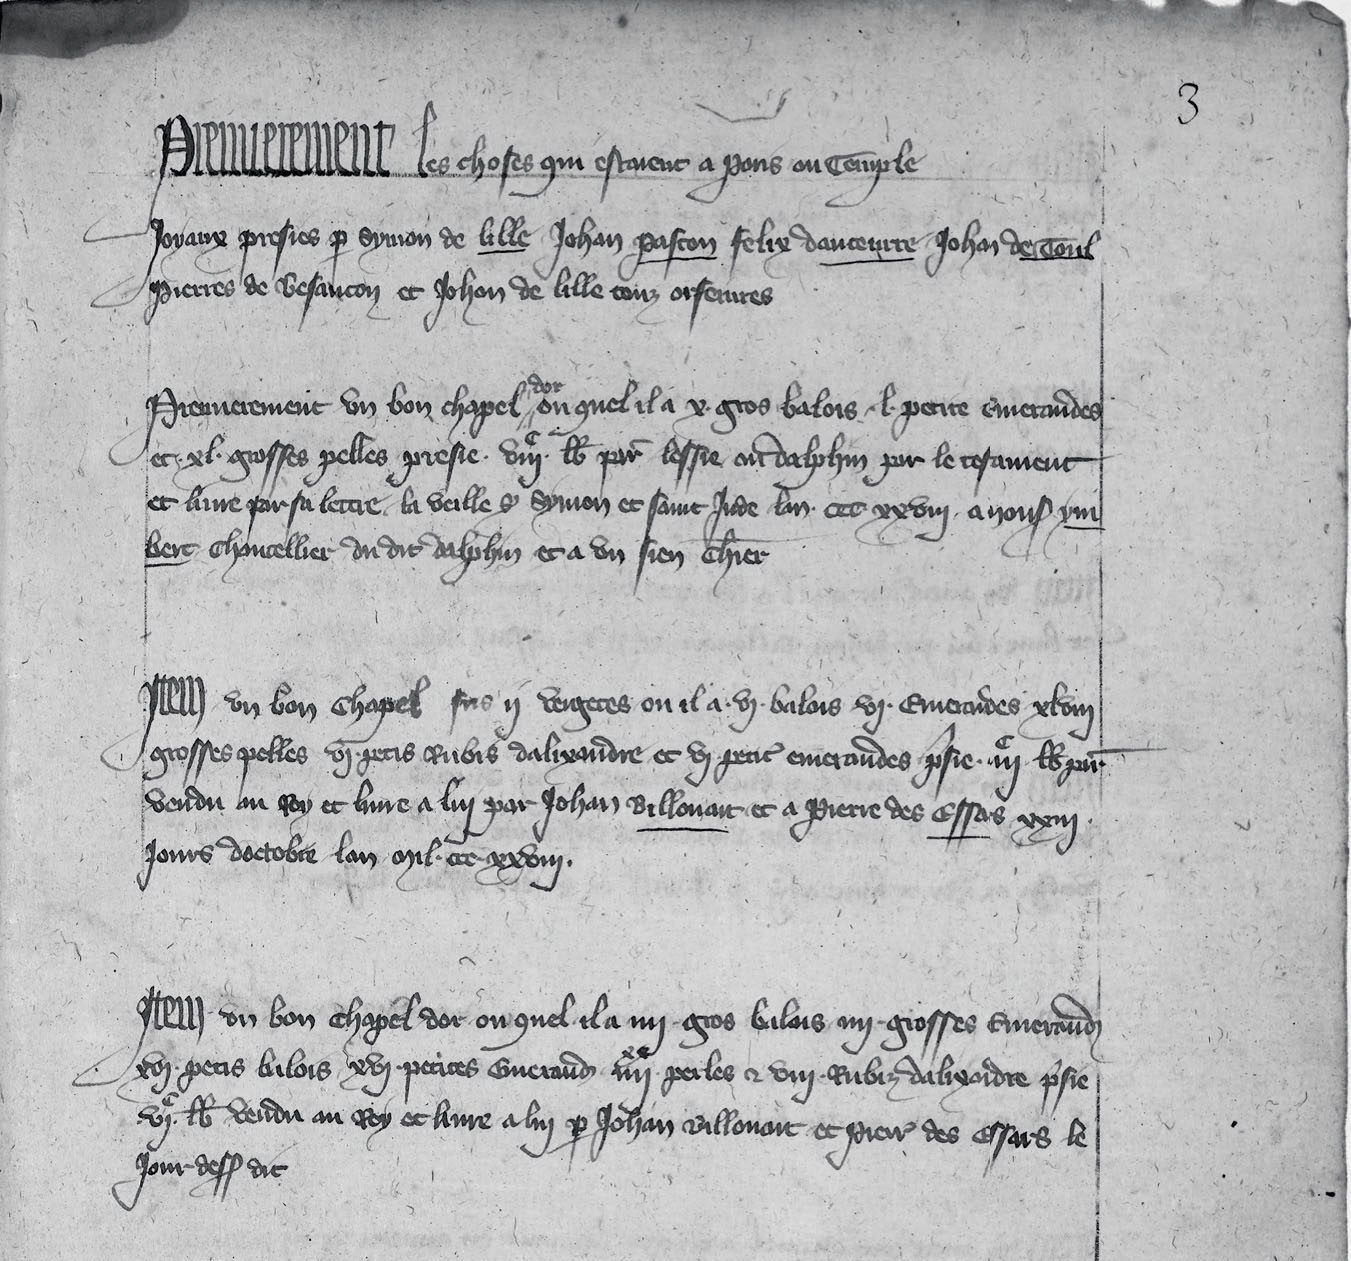 3
Premierement les choses qui estoient a Paris ou Temple
Joyaux prisies p Symon de lille Johan pascon felix dauceurre Johan de Toul
Pierres de Besancon et Johan de lille touz orfevres
Premierement un bon chapel dor ou quel il a x gros balois l petite emeraudes
et xl grosses pelles prisie viii c lb par lessie au dalphin par le testament
et livre par sa lettre la veille s Symon et saint Jude lan ccc xxviii a
bert Chancellier du dit dalphin et a un sien Chlier
Item un bon Chapel sus ii vergetes ou il a vi balois vi Emeraudes xlviii
grosses pelles vi petis Rubis dalixandre et vi petit emeraudes prsie iii c lb par
vendu au Roy et livre a lui par Johan Billouart et a Pierre des Essars xxiii
jours doctobre lan Mil ccc xxviii.
Item un bon Chapel dor ou quel il a iiii gros balois iiii grosses Emeraud
xvi petis balois xvi petites Emeraud iiii xx perles et viii Rubiz dalixandre prsie
vi c lb vendu au Roy et livre a lui p Johan Billouart et Pierr des Essars le
jour dess dit